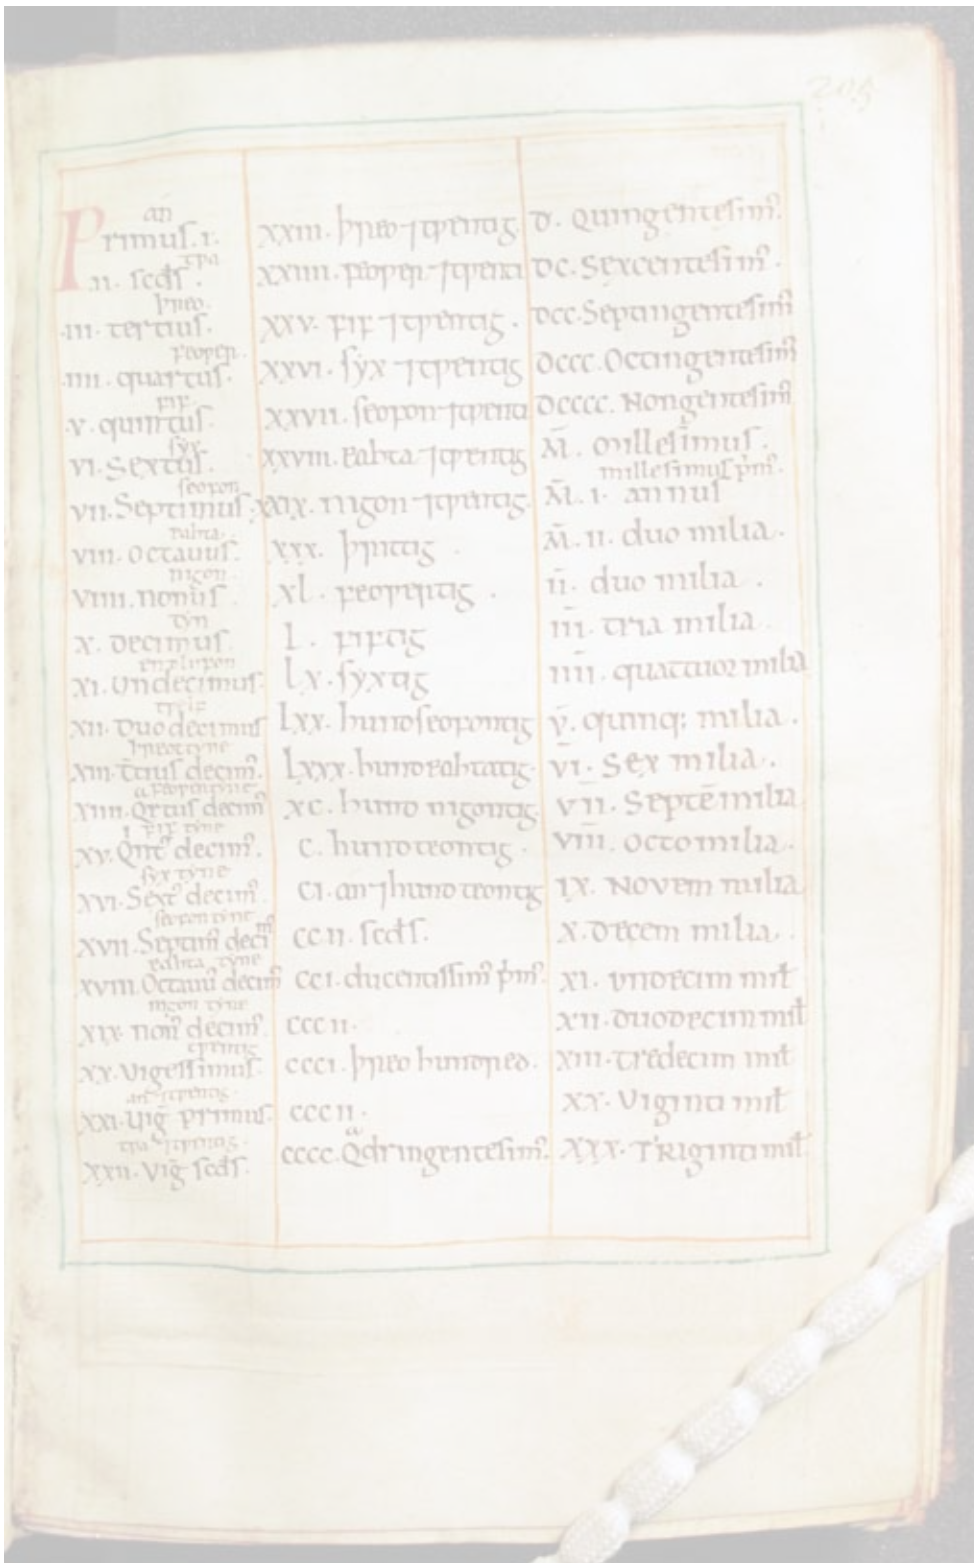 205
an
Primus. i.
tƿa
.ii. scds̄.
þreo.
.iii. tertius.
feoƿer.
.iiii. quartus.
fif.
.v. quintus.
syx.
vi. Sextus.
seofon
vii. Septimus.
eahta.
viii. octauus.
nigon.
viiii. nonus.
tyn
x. decimus.
endlifon
xi. Undecimus.
tƿelf
xii. Duodecimus
þreottyne
xiii. t̄tius decim̄.
feoƿertyne
xiiii. Qrtus decim̄
fif tyne
xv. Qnt᷒ decim̄.
syx tyne
xvi. Sext᷒ decim̄.
seofon tyne
xvii. Septim̄ decim̄
eahta tyne
xviii. Octauū decim̄
nigon tyne
xix. non᷒ decim̄.
tƿentig
xx. Vigessimus.
an ⁊tƿentig.
xxi. Uiḡ primus.
tƿa ⁊tƿentig.
xxii. Viḡ scds̄.
xxiii. þreo ⁊tƿentig.
xxiiii. feoƿer ⁊tƿenti
xxv. fif ⁊tƿentig.
xxvi. syx ⁊tƿentig
xxvii. seofon ⁊tƿenti
xxviii. eahta ⁊tƿentig
xxix. nigon ⁊tƿentig.
xxx. þrittig.
xl. feoƿertig.
l. fiftig
lx. syxtig
lxx. hundseofontig
lxxx. hundeahtatig.
xc. hund nigontig.
c. hundteontig.
ci. an ⁊hund teontig
cc ii. scds̄.
cci. ducentissim᷒ p̄m᷒.
ccc ii.
ccci. þreo hundred.
ccc ii.
cccc. Qadringentesim᷒.
d. Quingentesim᷒.
dc. Sexcentesim᷒.
dcc. Septingentesim᷒
dccc. Octingentesim᷒
dcccc. Nongentesim᷒
m̄. millesimus.
millesimus p̄m᷒.
m̄. i. annus
m̄. ii. duo milia.
īī. duo milia.
īīī. tria milia.
īīīī. quattuor milia
v̄. quinq; milia.
v̄ī. Sex milia.
v̄īī. Septē milia
v̄īīī. octo milia.
ix. Novem milia
x. decem milia.
xi. vndecim mil̄
xii. duodecim mil̄
xiii. tredecim mil̄
xx. Viginti mil̄
xxx. Triginti mil̄